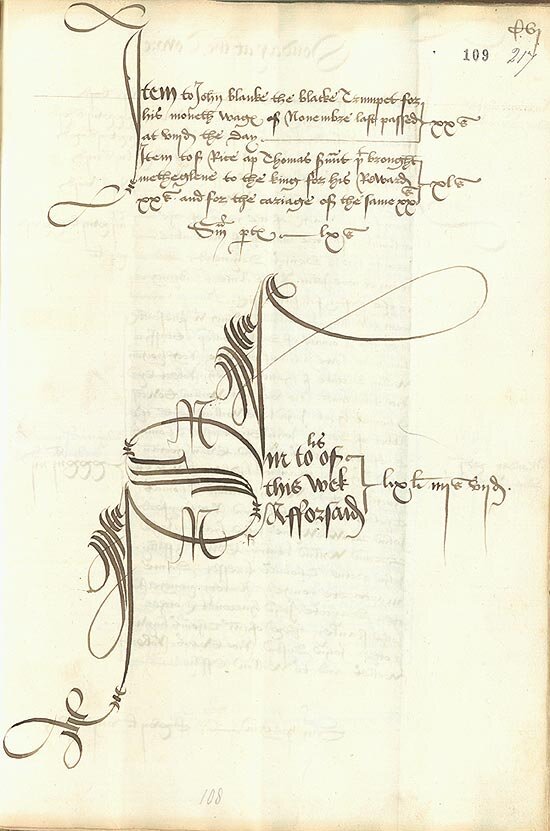 109
217
Item to John blanke the blacke Trumpet for
his moneth wages of Nouembre last passed
at viijd the day
xxs
Item to Rice ap Thomas srunt brought
metheglene to the king for his Reward
xxs and for the cariage of the same xxs
xls
lxs
this wek
Afforsaid
108